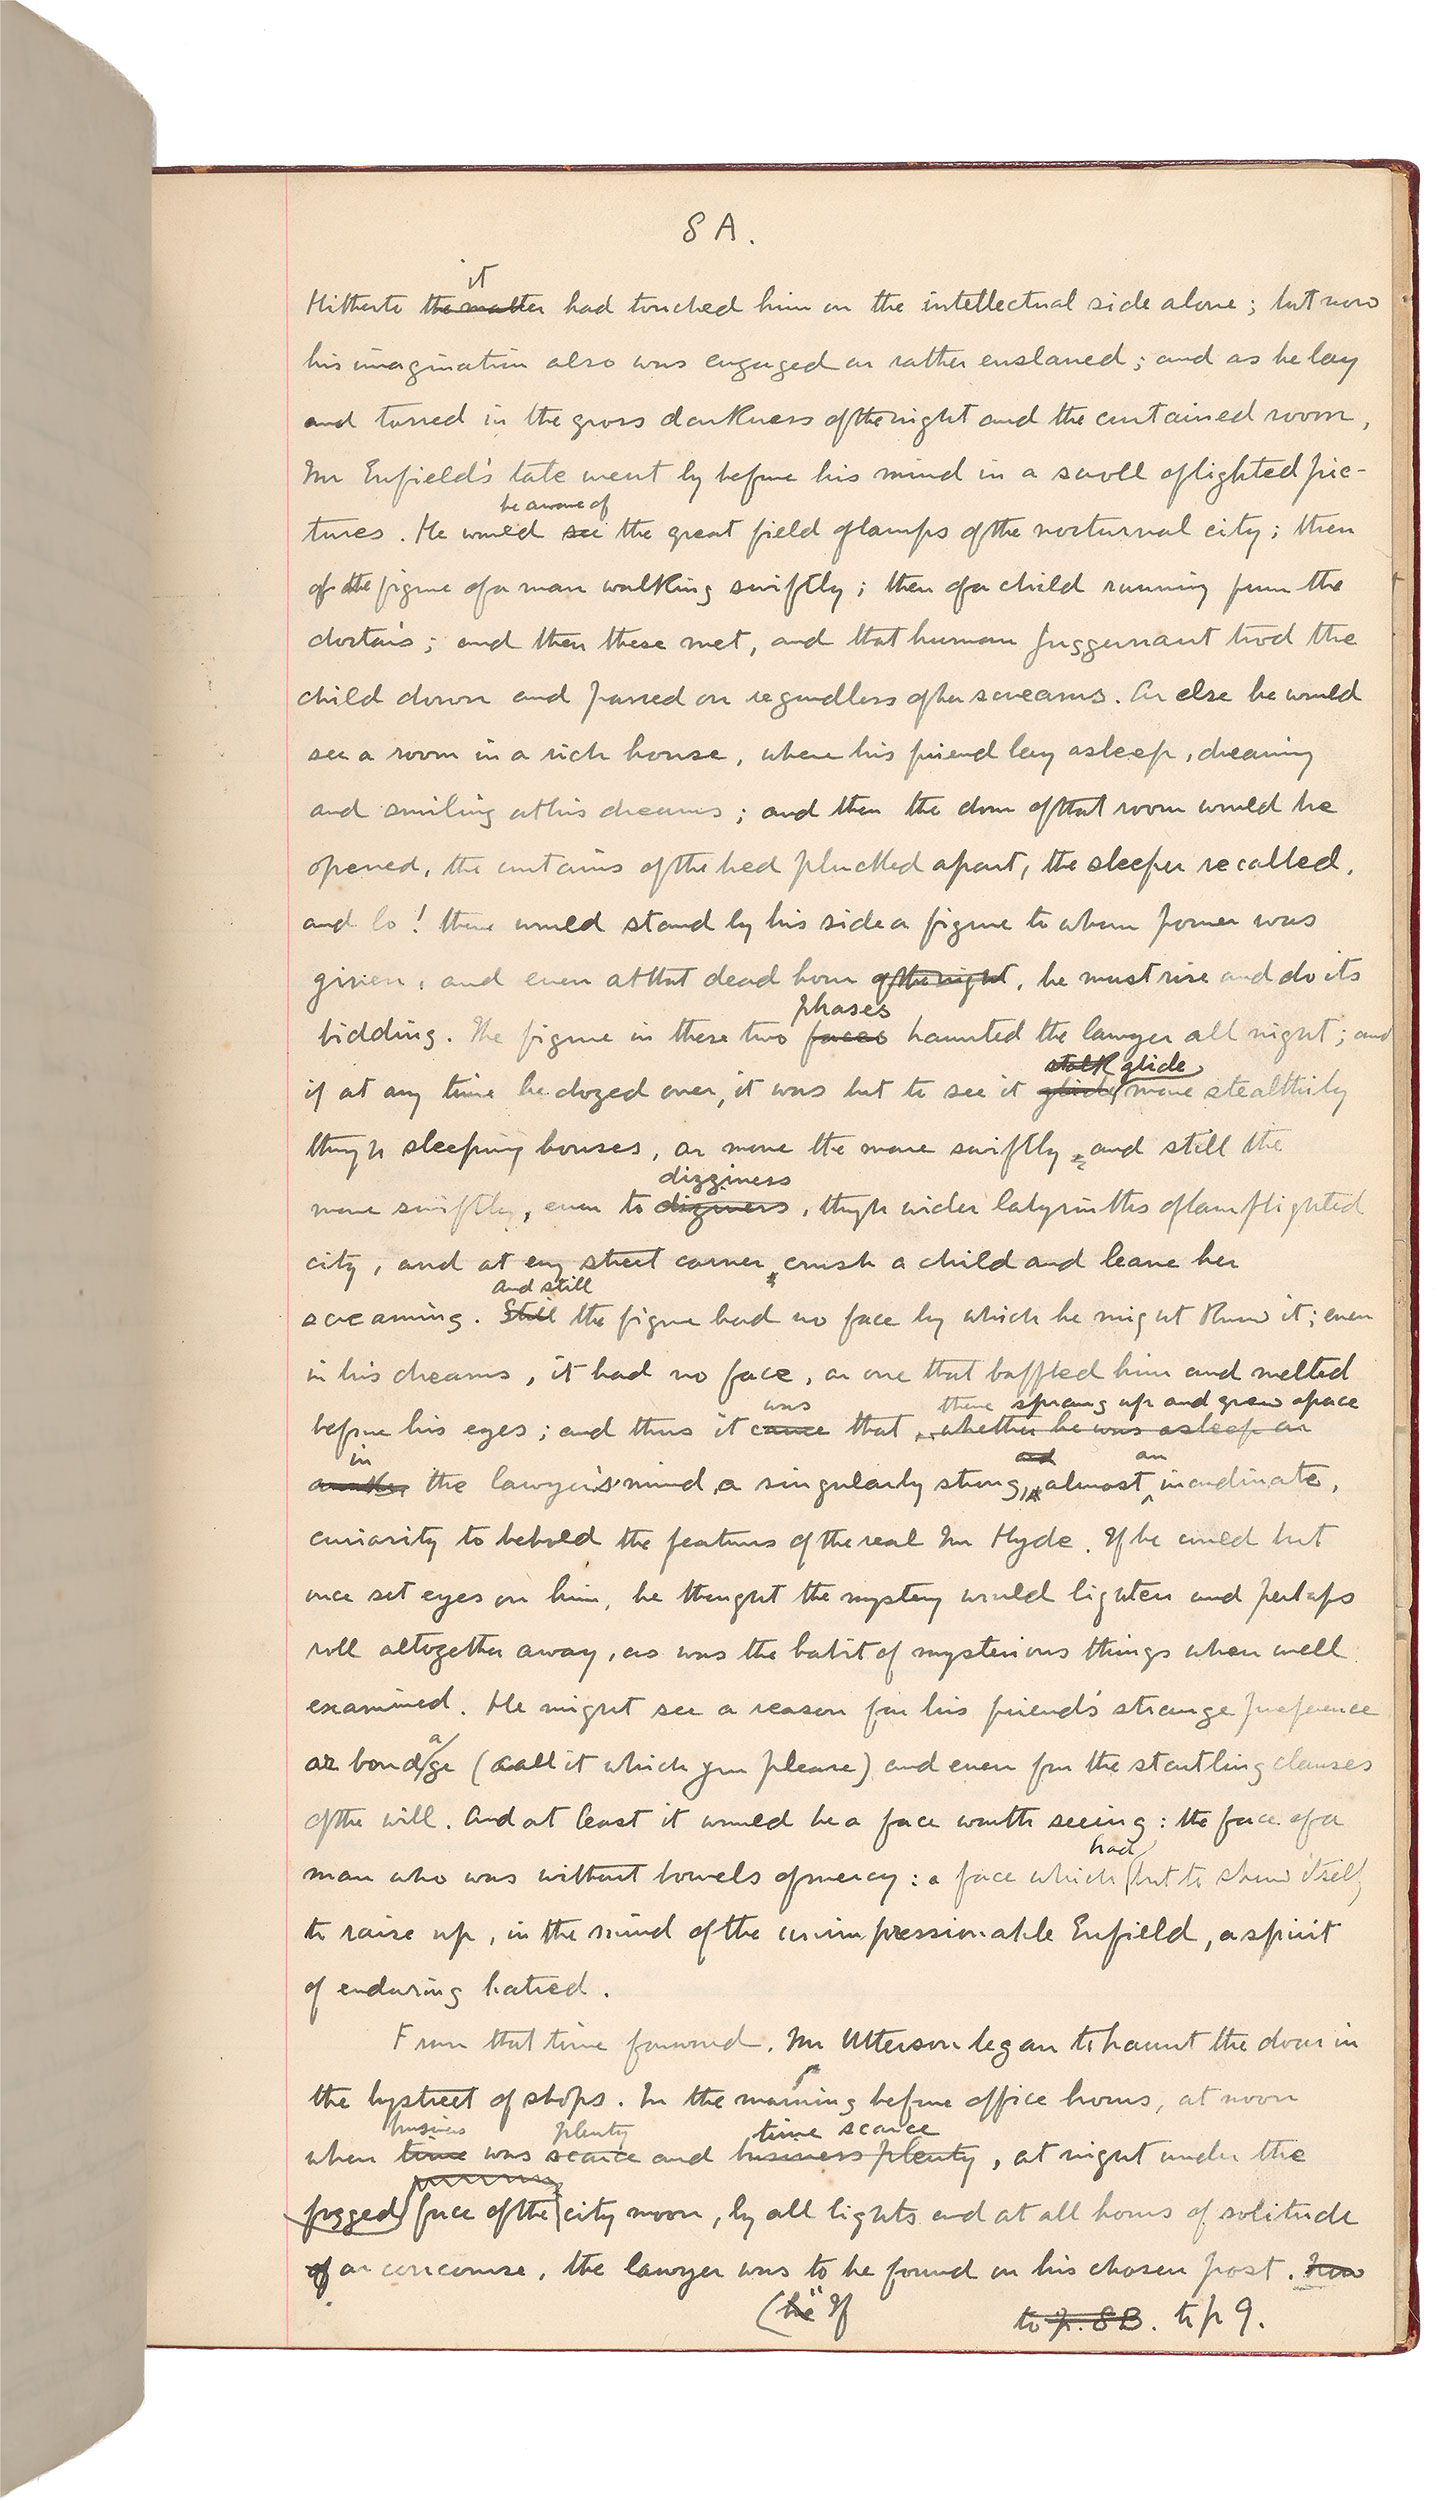 8 A.
it
Hitherto the matter had touched him on the intellectual side alone; but now
his imagination also was engaged or rather enslaved; and as he lay
and tossed in the gross darkness of the night and the curtained room,
Mr Enfield's tale went by before his mind in a scroll of lighted pic-
be aware of
tures. He would see the great field of lamps of the nocturnal city; then
of the figure of a man walking swiftly; then of a child running from the
doctor's; and then these met, and that human Juggernaut trod the
child down and passed on regardless of her screams. Or else he would
see a room in a rich house, where his friend lay asleep, dreaming
and smiling at his dreams; and then the door of that room would be
opened, the curtains of the bed plucked apart, the sleeper recalled,
and lo! there would stand by his side a figure to whom power was
given, and even at that dead hour of the night, he must rise and do its
phases
bidding. The figure in these two faces haunted the lawyer all night; and
stalk glide
if at any time he dozed over, it was but to see it glide more stealthily
through sleeping houses, or move the more swiftly and still the
dizziness
more swiftly, even to diziness, through wider labyrinths of lamplighted
city, and at every street corner crush a child and leave her
and still
screaming. Still the figure had no face by which he might know it; even
in his dreams, it had no face, or one that baffled him and melted
was there sprang up and grew apace
before his eyes; and thus it came that, whether he was asleep or
in and an
awake, the lawyer's mind a singularly strong, almost inordinate,
curiosity to behold the features of the real Mr Hyde. If he could but
once set eyes on him, he thought the mystery would lighten and perhaps
roll altogether away, as was the habit of mysterious things when well
examined. He might see a reason for his friend's strange preference
a
or bondage (call it which you please) and even for the startling clauses
of the will. And at least it would be a face worth seeing: the face of a
had
man who was without bowels of mercy: a face which but to show itself
to raise up, in the mind of the unimpressionable Enfield, a spirit
of enduring hatred.
From that time forward, Mr Utterson began to haunt the door in
the bystreet of shops. In the morning before office hours, at noon
business plenty time scarce
when time was scarce and business plenty, at night under the
fogged face of the city moon, by all lights and at all hours of solitude
of or concourse, the lawyer was to be found on his chosen post. Now
(he "If
to p. 8B. to p 9.